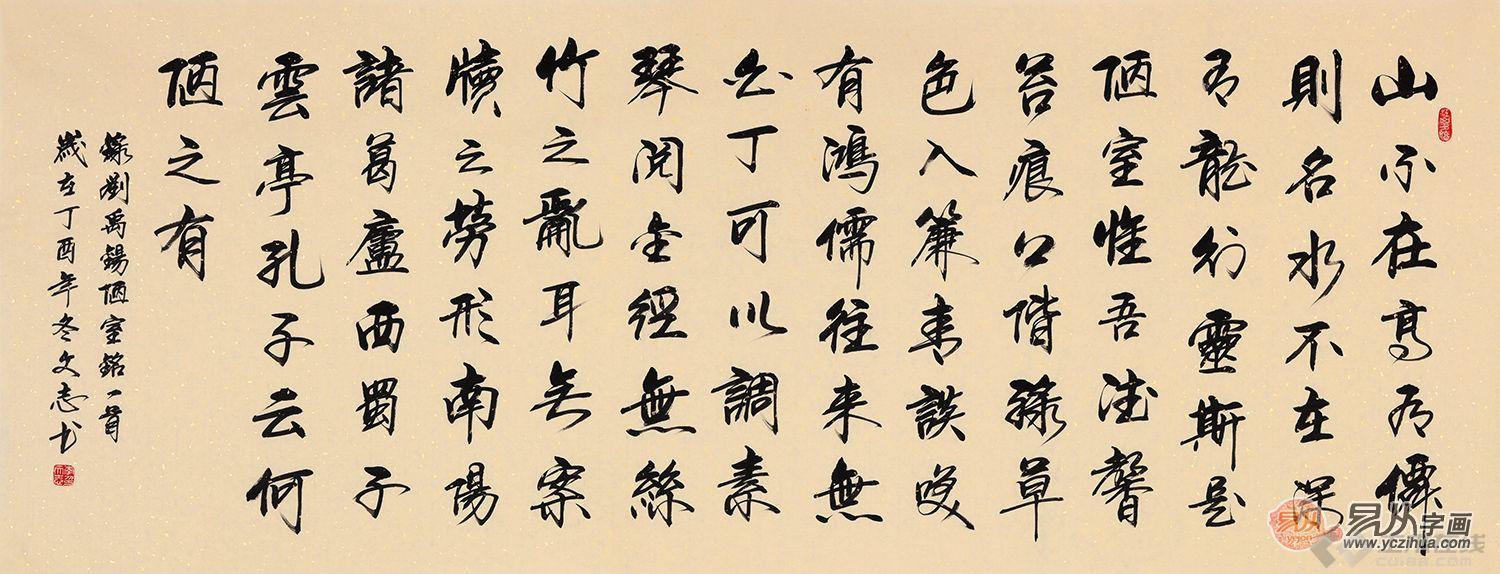 山不在高有僊
則名水不在深
有龍則靈斯是
陋室惟吾德馨
苔痕上階綠草
色入簾青談笑
有鴻儒往來無
白丁可以調素
琴閱金經無絲
竹之亂耳無案
牘之勞形南陽
諸葛廬西蜀子
雲亭孔子云何
陋之有
錄劉禹錫陋室銘一首
歲在丁酉年冬文志书
易从字画
www.yczihua.com